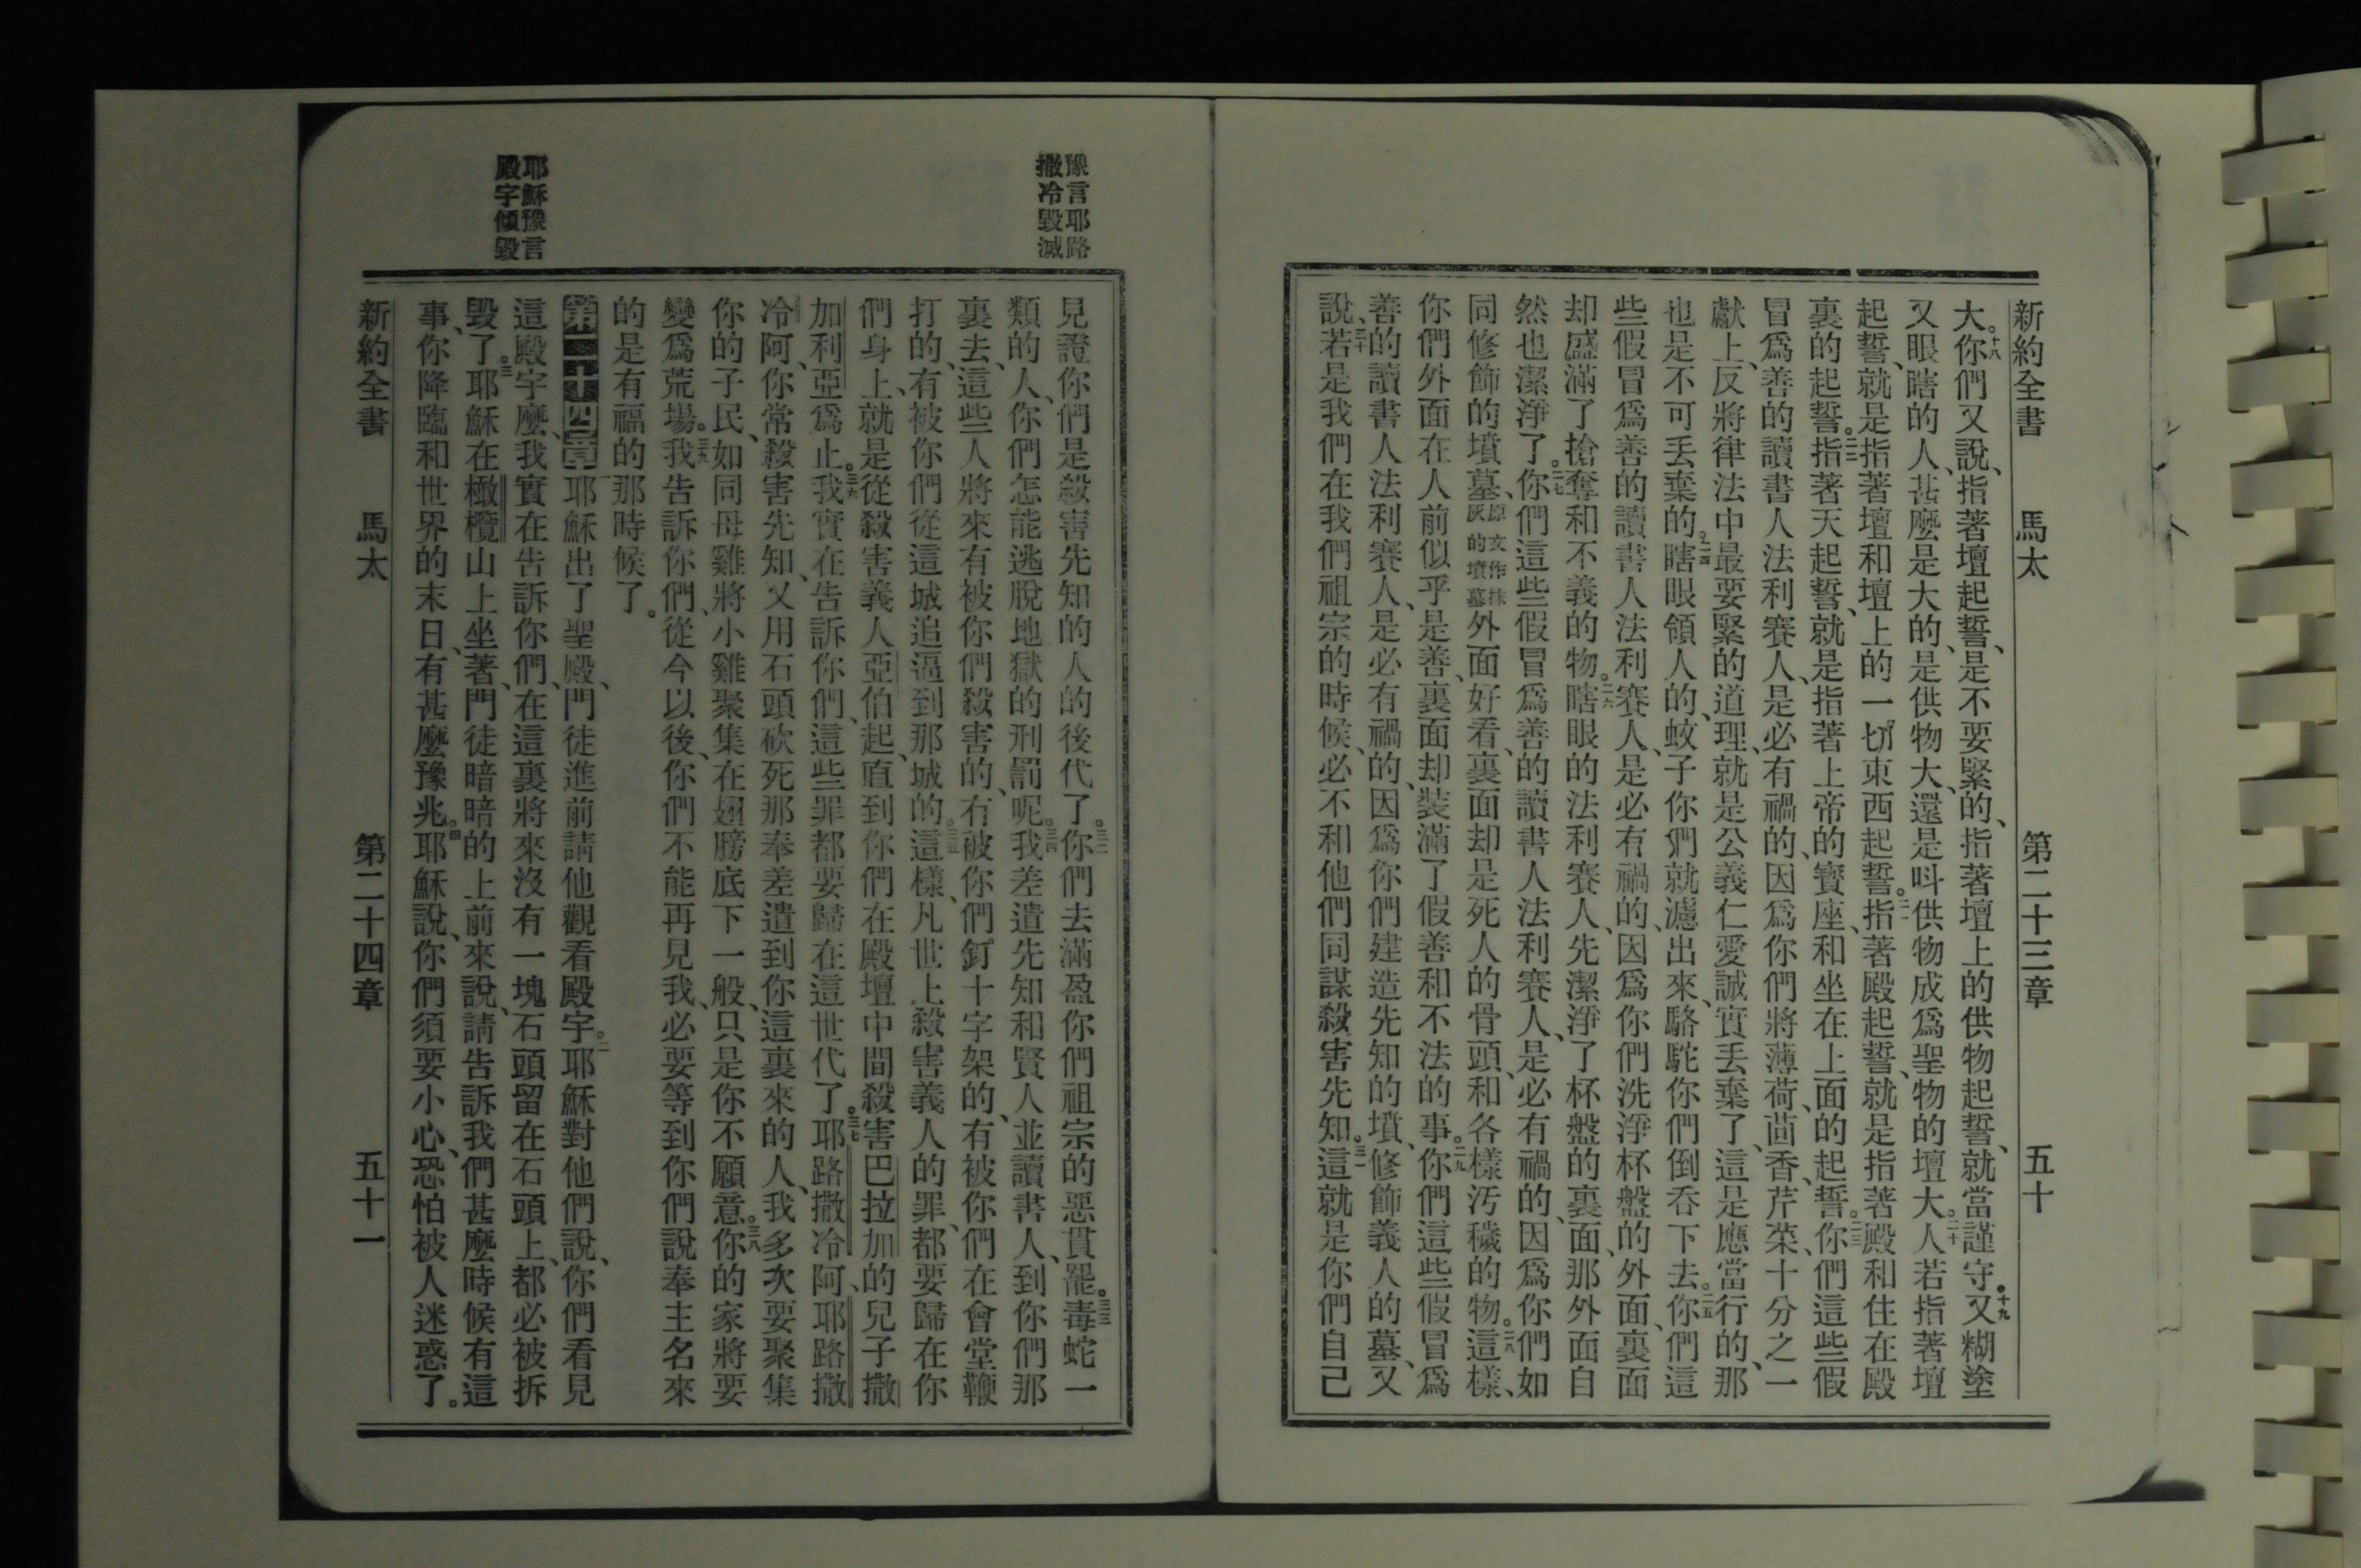 新約全書 馬太 第二十三章 五十
大。十八你們又說、指著壇起誓、是不要緊的、指著壇上的供物起誓、就當謹守。十九又糊塗
又眼瞎的人、甚麼是大的、是供物大、還是呌供物成爲聖物的壇大。二十人若指著壇
起誓、就是指著壇和壇上的一切東西起誓。二一指著殿起誓、就是指著殿和住在殿
裏的起誓。二二指著天起誓、就是指著上帝的寶座、和坐在上面的起誓。二三你們這些假
冒爲善的讀書人法利賽人、是必有禍的、因爲你們將薄荷、茴香、芹菜、十分之一
獻上、反將律法中最要緊的道理、就是公義仁愛誠實丟棄了、這是應當行的、那
也是不可丟棄的。二四瞎眼領人的、蚊子你們就濾出來、駱駝你們倒吞下去。二五你們這
些假冒爲善的讀書人法利賽人、是必有禍的、因爲你們洗淨杯盤的外面、裏面
却盛滿了搶奪和不義的物。二六瞎眼的法利賽人、先潔淨了杯盤的裏面、那外面自
然也潔淨了。二七你們這些假冒爲善的讀書人法利賽人、是必有禍的、因爲你們如
同修飾的墳墓、原文作抹灰的墳墓外面好看、裏面却是死人的骨頭、和各樣汚穢的物。二八這樣、
你們外面在人前似乎是善、裏面却裝滿了假善和不法的事。二九你們這些假冒爲
善的讀書人法利賽人、是必有禍的、因爲你們建造先知的墳、修飾義人的墓、又
說、三十若是我們在我們祖宗的時候、必不和他們同謀殺害先知。三一這就是你們自己
豫言耶路
撒冷毀滅
見證你們是殺害先知的人的後代了。三二你們去滿盈你們祖宗的惡貫罷。三三毒蛇一
類的人、你們怎能逃脫地獄的刑罰呢。三四我差遣先知和賢人並讀書人、到你們那
裏去、這些人將來有被你們殺害的、有被你們釘十字架的、有被你們在會堂鞭
打的、有被你們從這城追逼到那城的。三五這樣、凡世上殺害義人的罪、都要歸在你
們身上、就是從殺害義人亞伯起、直到你們在殿壇中間殺害巴拉加的兒子撒
加利亞爲止。三六我實在告訴你們、這些罪都要歸在這世代了。三七耶路撒冷阿、耶路撒
冷阿、你常殺害先知、又用石頭砍死那奉差遣到你這裏來的人、我多次要聚集
你的子民、如同母雞將小雞聚集在翅膀底下一般、只是你不願意。三八你的家將要
變爲荒場。三九我告訴你們、從今以後、你們不能再見我、必要等到你們說奉主名來
的是有福的那時候了。
耶穌豫言
殿宇傾毀
第二十四章 耶穌出了聖殿、門徒進前請他觀看殿宇。二耶穌對他們說、你們看見
這殿宇麼、我實在告訴你們、在這裏將來沒有一塊石頭留在石頭上、都必被拆
毀了。三耶穌在橄欖山上坐著、門徒暗暗的上前來說、請告訴我們甚麼時候有這
事、你降臨和世界的末日、有甚麼豫兆。四耶穌說、你們須要小心、恐怕被人迷惑了。
新約全書 馬太 第二十四章 五十一